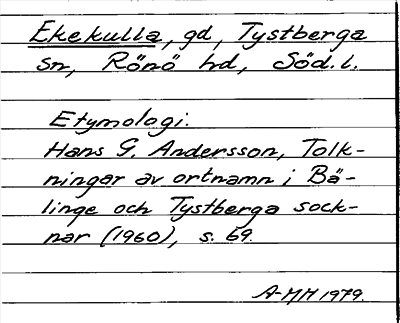 Ekekulla, gd, Tystberga
sn, Rönö hd, Söd. l.
Etymologi.
Hans G. Andersson, Tolk-
ningar av ortnamn i Bä-
linge och Tystberga sock-
nar (1960), s. 69.
A-MM 1979.